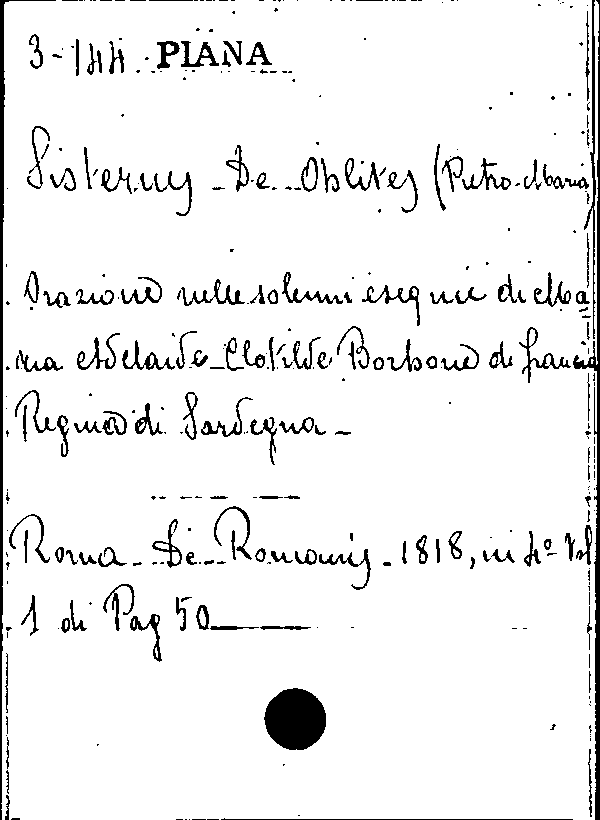 3-144. PIANA
Sisternes De Oblites (Pietro Maria)
Orazione nelle solenni esequie di Ma
ria Adelaide Clotilde Borbone di Francia
Regina di Sardegna -
Roma - De Romanis - 1818, in 4º Vol
1 di Pag 50